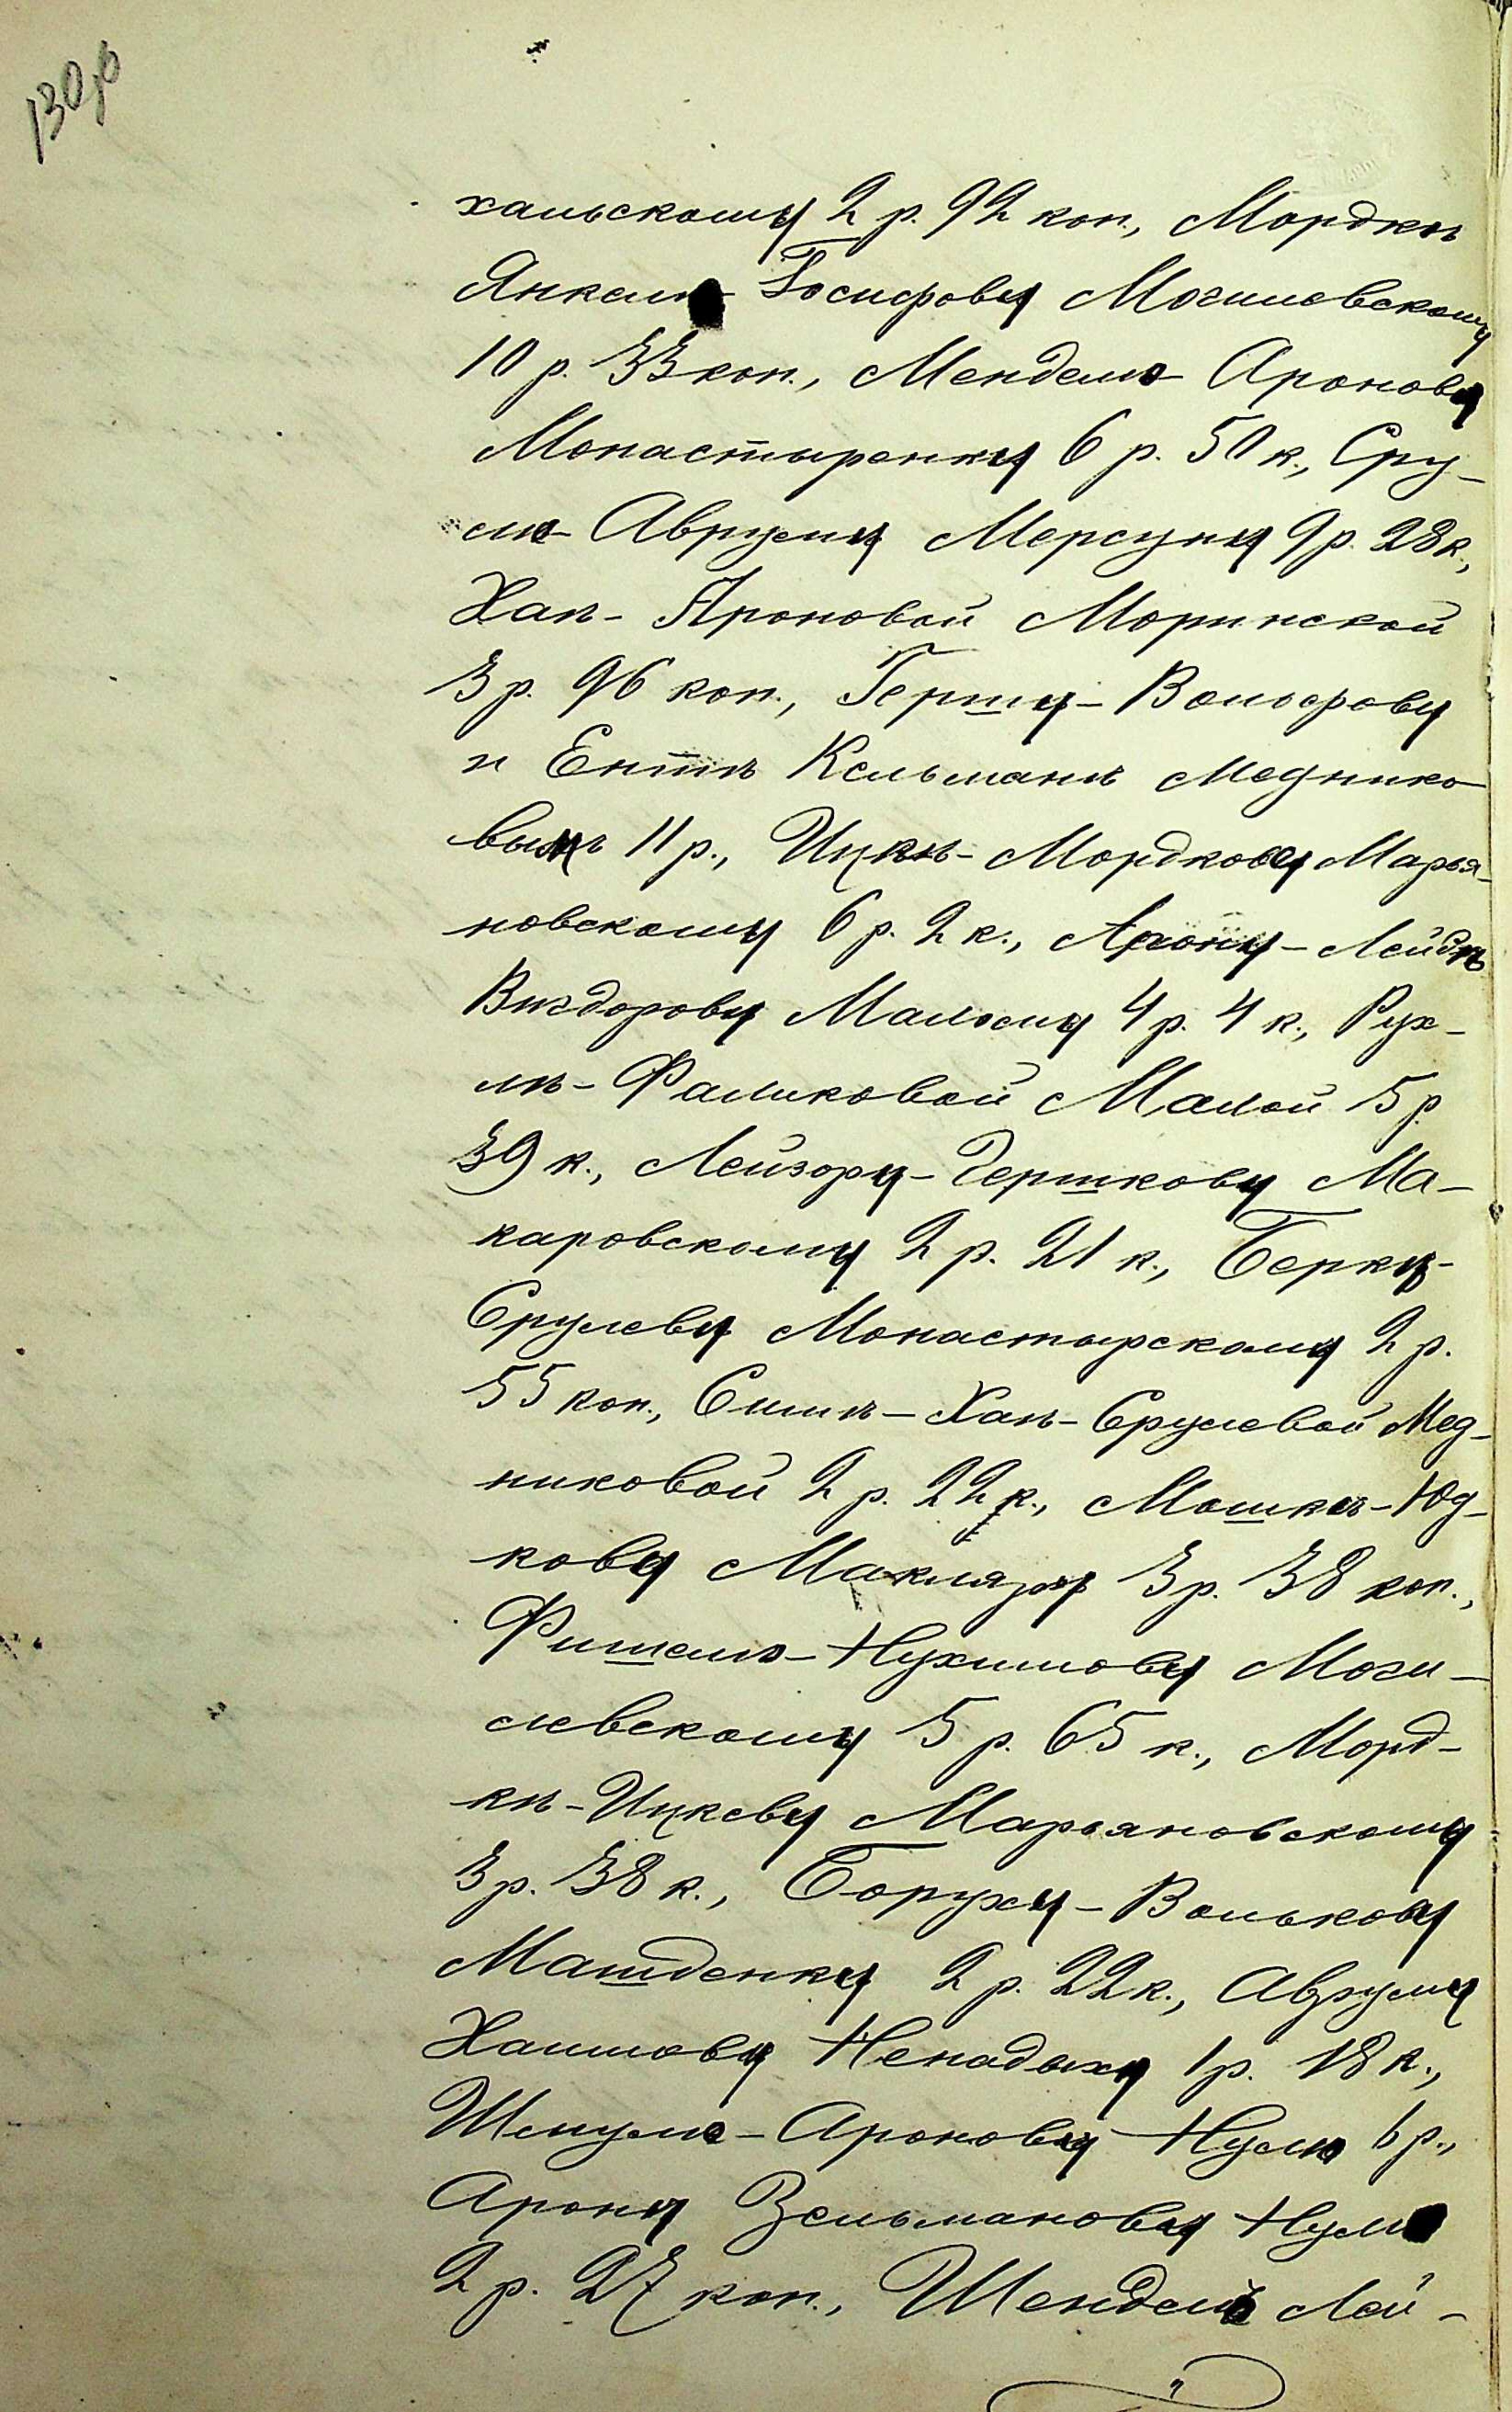 130 об
хальскому 2 р. 92 коп., Мордкѣ
Янкелю Іосифову Могилевскому
10 р. 33 коп., Менделю Аронову
Монастыренку 6 р. 50 к., Сру-
лю-Авруму Мерсуну 9 р. 28 к.,
Хаѣ-Ароновой Моринской
3 р. 96 коп., Гершу-Вольфову
и Ентѣ Кельманѣ Меднико-
вымъ 11 р., Ицкѣ-Мордкову Марья-
новскому 6 р. 2 к., Арону-Лейбѣ
Вигдорову Малому 4 р. 4 к., Рух-
лѣ-Фаликовой Малой 5 р.
39 к., Лейзору-Гершкову Ма-
каровскому 2 р. 21 к., Берку-
Срулеву Монастырскому 2 р.
55 коп., Симѣ-Хаѣ-Срулевой Мед-
никовой 2 р. 22 к., Мошкѣ-Юд-
кову Макляру 3 р. 38 коп.,
Фишелю-Нухимову Моги-
левскому 5 р. 65 к., Морд-
кѣ-Ицкеву Марьяновскому
3 р. 38 к., Боруху-Волькову
Машденку 2 р. 22 к., Авруму
Хаимову Ненадыху 1 р. 18 к.,
Шмулю-Аронову Нулю 6 р.,
Арону Зельманову Нулю
2 р. 27 коп., Шендель Лей-